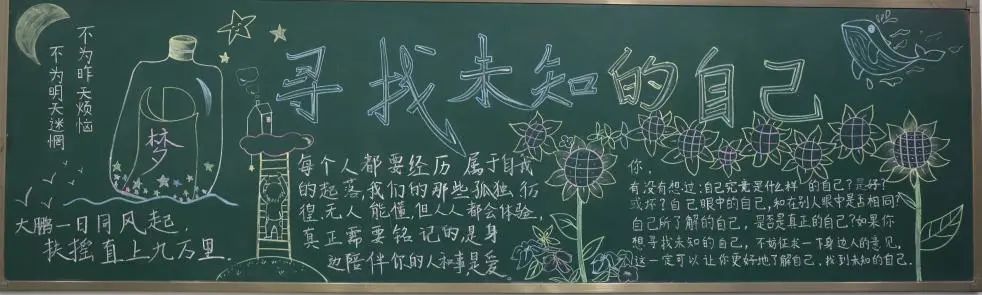 寻找未知的自己
不为昨天烦恼
不为明天迷惘
梦
大鹏一日同风起,
扶摇直上九万里.
每个人都要经历属于自我
的起落,我们的那些孤独,彷
徨,无人能懂,但人人都会体验,
真正需要铭记的,是身
边陪伴你的人和事,是爱.
你,
有没有想过:自己究竟是什么样的自己?是好?
或坏?自己眼中的自己,和在别人眼中是否相同?
自己所了解的自己,是否是真正的自己?如果你
想寻找未知的自己,不妨征求一下身边人的意见,
这一定可以让你更好地了解自己,找到未知的自己.